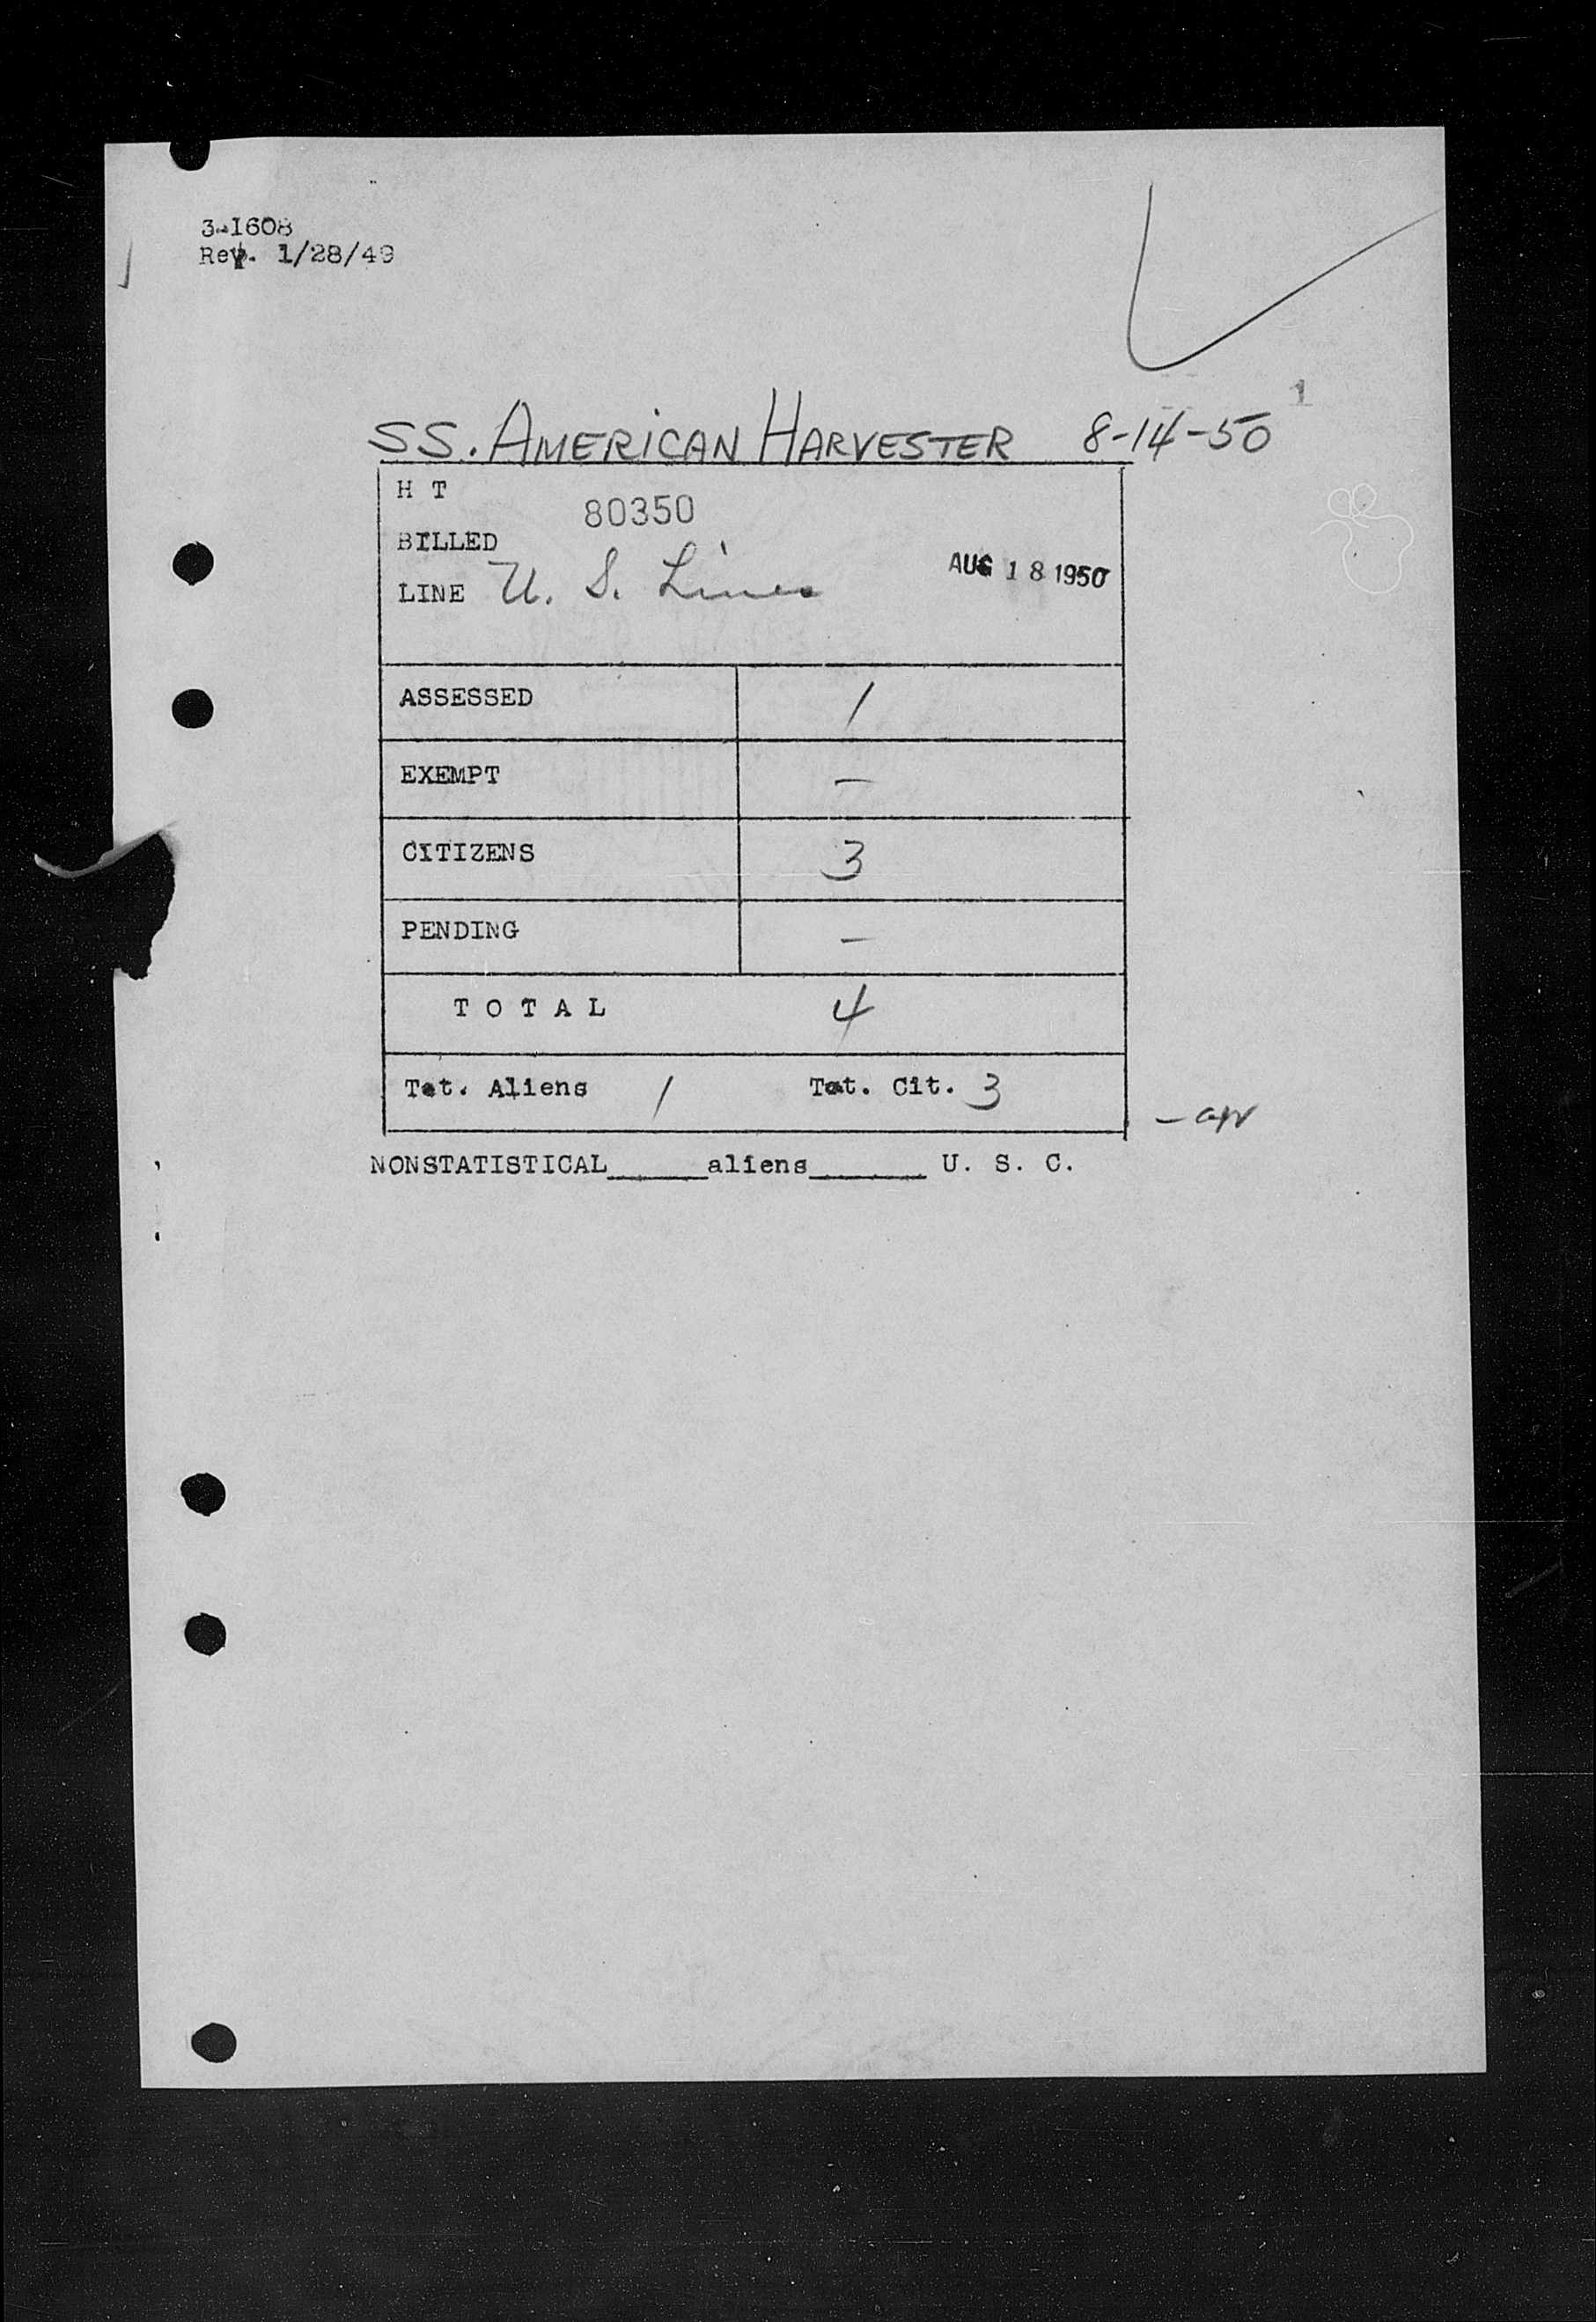 3-1608
Rev. 1/28/49
1
SS. AMERICAN HARVESTER 8-14-50
H T
80350
BILLED
AUG 18 1950
LINE U. S. Lines
ASSESSED 1
EXEMPT —
CITIZENS 3
PENDING —
TOTAL 4
Tot. Aliens 1 Tot. Cit. 3
NONSTATISTICAL_____aliens______ U. S. C.